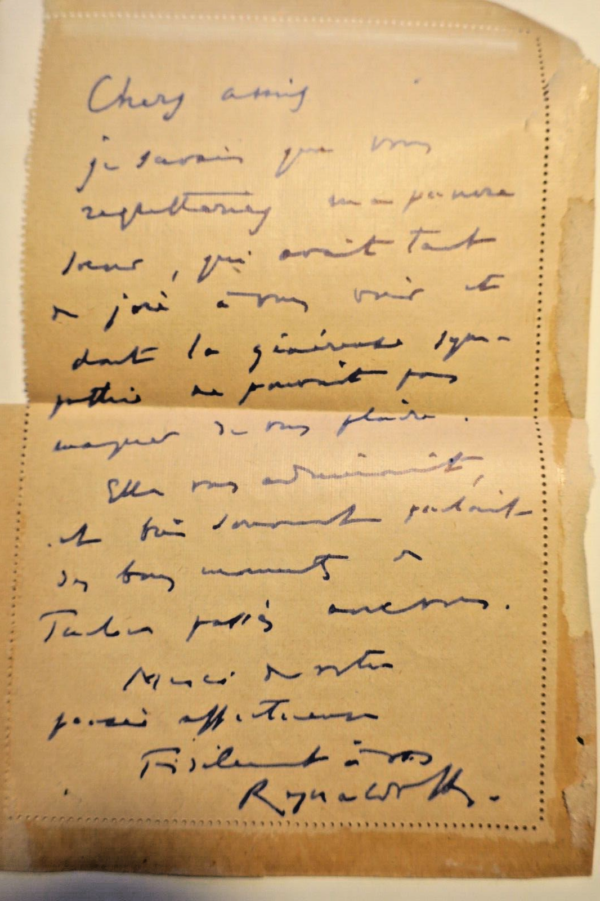 Chers amis
je savais que vous
regretteriez ma pauvre
sœur, qui avait tant
de joie à vous voir et
dont la généreuse sym-
pathie ne pouvait pas
manquer de vous plaire.
Elle vous admirait,
et bien souvent parlait
des bons moments à
Toulon passés avec vous.
Merci de votre
pensée affectueuse
Fidèlement à vous
Reynaldo H.